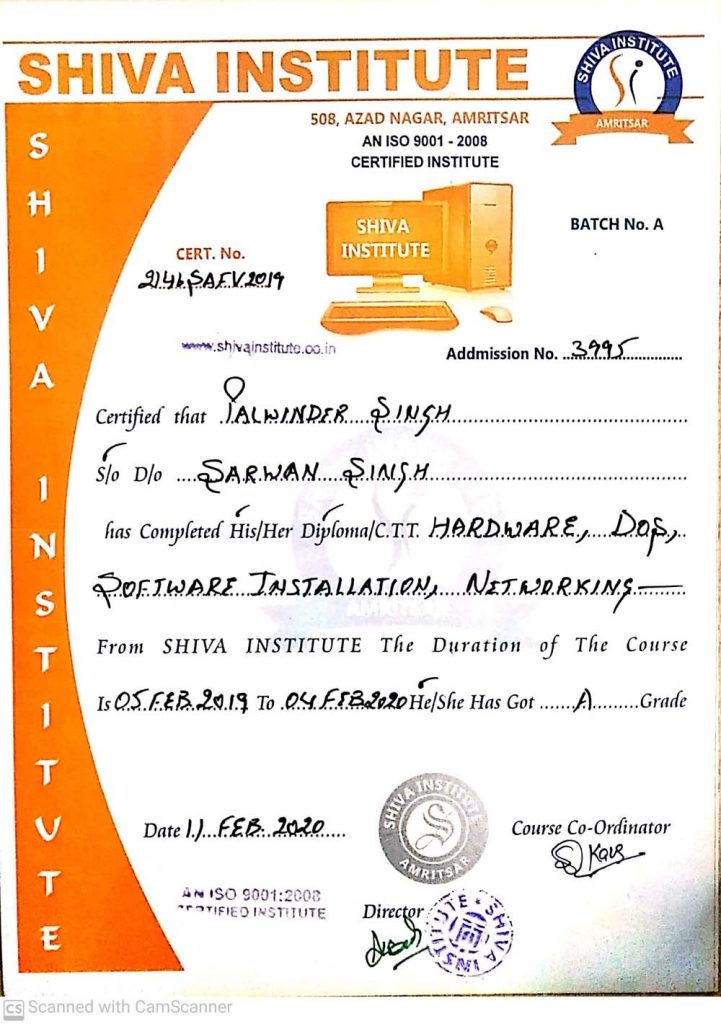 SHIVA INSTITUTE
SHIVA INSTITUTE
AMRITSAR
508, AZAD NAGAR, AMRITSAR
AN ISO 9001 - 2008
CERTIFIED INSTITUTE
SHIVA INSTITUTE
SHIVA
INSTITUTE
BATCH No. A
CERT. No.
www.shivainstitute.co.in
Addmission No. ..3995..............
Certified that .PALWINDER SINGH.............................................
S/o D/o ....SARWAN SINGH.............................................
has Completed His/Her Diploma/C.T.T. HARDWARE, DOS,
SOFTWARE INSTALLATION, NETWORKING—
AMRITSAR
From SHIVA INSTITUTE The Duration of The Course
Is 05 FEB 2019 To .04 FEB 2020 He/She Has Got .......A.........Grade
Date 11 FEB. 2020....
SHIVA INSTITUTE
S
AMRITSAR
Course Co-Ordinator
Kaur
AN ISO 9001:2008
CERTIFIED INSTITUTE
Director
SHIVA INSTITUTE
CS Scanned with CamScanner